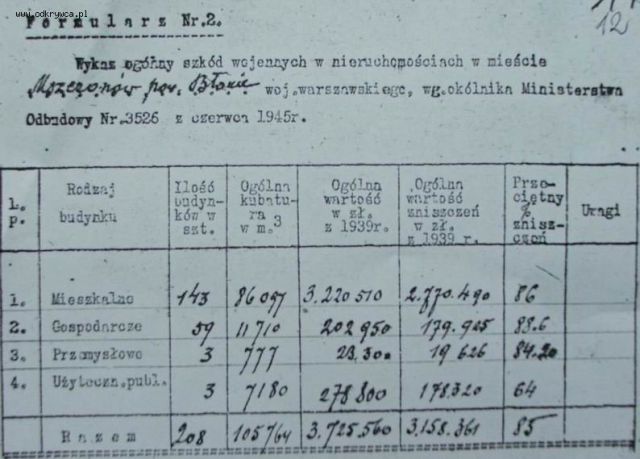 www.odkrywca.pl
Formularz Nr.2.
12
Wykaz ogólny szkód wojennych w nieruchomościach w mieście
Mszczonów pow. Błonie woj.warszawskiego, wg.okólnika Ministerstwa
Odbudowy Nr.3526 z czerwca 1945r.
l. p. Rodzaj budynku Ilość budyn- ków w szt. Ogólna kubatu- ra w m.3 Ogólna wartość w zł. z 1939r. Ogólna wartość zniszczeń w zł. z 1939 r. Prze- ciętny % znisz- czeń Uwagi
1. Mieszkalne 143 86 097 3.220 510 2.770.490 86
2. Gospodarcze 59 11 710 202 950 179.925 88.6
3. Przemysłowe 3 777 23.300 19 626 84.20
4. Użyteczn.publ. 3 7180 278 800 178.320 64
Razem 208 105 764 3.725.560 3.158.361 85